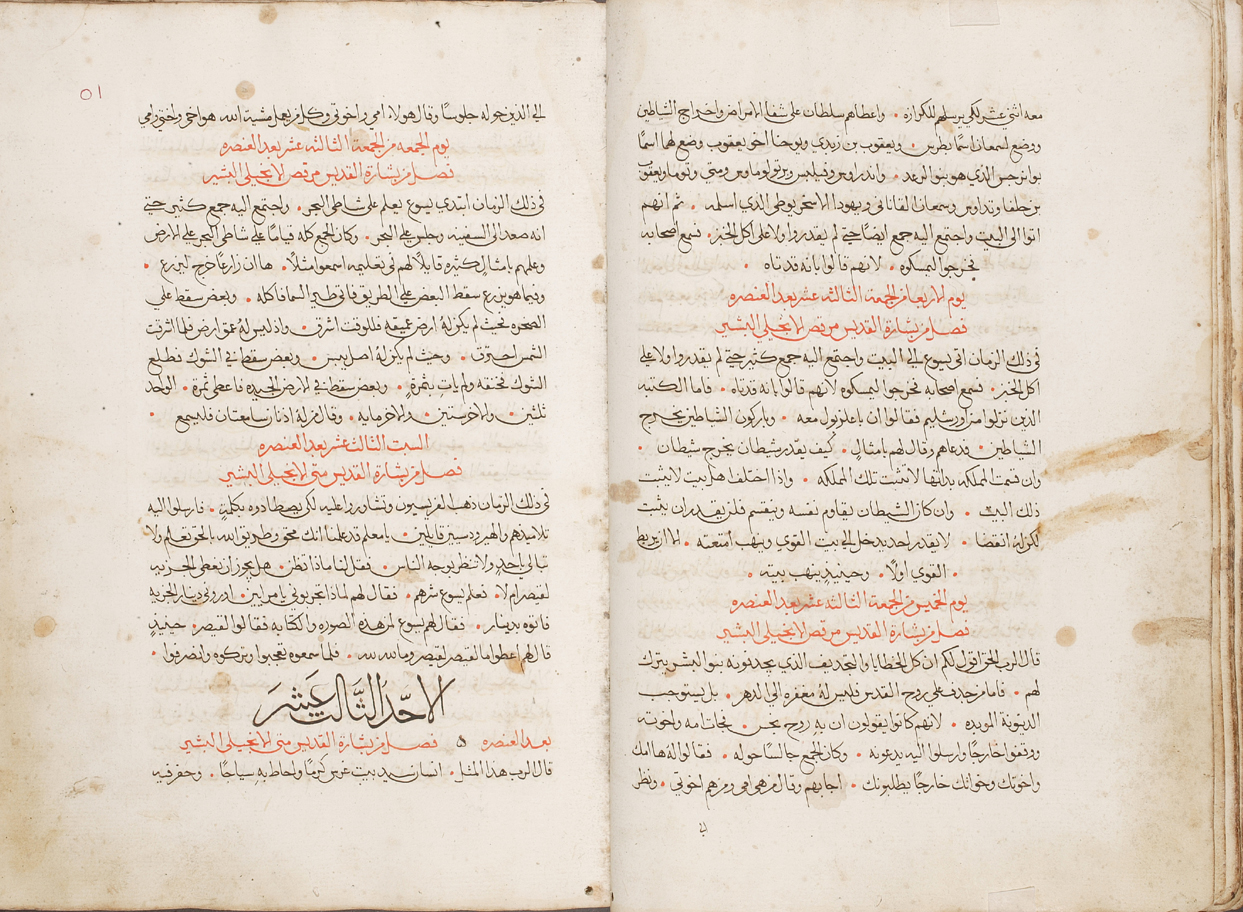 معه اثني عشر لكي يرسلهم للكرازه • واعطاهم سلطان على شفا الامراض واخراج الشياطين
ووضع لسمعان اسمًا بطرس • ويعقوب بن زبدي ويوحنا اخو يعقوب ووضع لهما اسمًا
بوانرجس الذي هو بنو الرعد • واندراوس وفيلبس وبرتولوماوس ومتي وتوما ويعقوب
بن حلفا وتداوس وسمعان القاناني ويهودا الاسخريوطي الذي اسلمه • ثم انهم
اتوا الى البيت واجتمع اليه جمع ايضًا حتي لم يقدروا ولا على اكل الخبز • فسمع اصحابه
فخرجوا ليمسكوه • لانهم قالوا بانه قد تاه •
يوم الاربعا من الجمعة الثالثة عشر بعد العنصره
فصل من بشارة القديس مرقص الانجيلي البشير
في ذلك الزمان اتى يسوع الي البيت واجتمع اليه جمع كثير حتي لم يقدروا ولا علي
اكل الخبز • فسمع اصحابه فخرجوا ليمسكوه لانهم قالوا بانه قد تاه • فاما الكتبه
الذين نزلوا من اورشليم فقالوا ان باعلزبول معه • وباركون الشياطين يخرج
الشياطين • فدعاهم وقال لهم بامثالٍ • كيف يقدر شيطان يخرج شيطان •
وان قسمت المملكه بذاتها لا تثبت تلك المملكه • واذا اختلف اهل بيت لا يثبت
ذلك البيت • وان كان الشيطان يقاوم نفسه وينقسم فلن يقدر ان يثبت
لكن له انقضا • لا يقدر احد يدخل الي بيت القوي وينهب امتعته • الا ان يربط
• القوي اولًا • وحينيذٍ ينهب بيته •
يوم الخميس من الجمعة الثالثة عشر بعد العنصره
فصل من بشارة القديس مرقص الانجيلي البشير
قال الرب الحق اقول لكم ان كل الخطايا والتجديف الذي يجدفونه بنو البشر يترك
لهم • فاما من جدف علي روح القدس فليس له مغفره الي الدهر • بل يستوجب
الدينونة الموبده • لانهم كانوا يقولون ان به روح نجس • فجات امه واخوته
ووقفوا خارجًا وارسلوا اليه يدعونه • وكان الجمع جالسًا حوله • فقالوا له ها امك
واخوتك وخواتك خارجًا يطلبونك • اجابهم وقال من هي امي ومن هم اخوتي • ونظر
الي الذين حوله جلوسًا وقال هولاء امي واخوتي وكل من يعمل مشية الله هو اخي واختي وامي
يوم الجمعه من الجمعة الثالثه عشر بعد العنصره
فصل من بشارة القديس مرقص الانجيلي البشير
في ذلك الزمان ابتدي يسوع يعلم علي شاطي البحر • واجتمع اليه جمع كثير حتي
انه صعد الى السفينه وجلس علي البحر • وكان الجمع كله قيامًا علي شاطي البحر علي الارض
وعلمهم بامثالٍ كثيره قايلًا لهم في تعليمه اسمعوا مثلًا • ها ان زارعًا خرج ليزرع •
وفيما هو يزرع سقط البعض علي الطريق فاتي طير السما فاكله • وبعض سقط علي
الصخره بحيث لم يكن له ارض عميقه فللوقت اشرق • واذ ليس له عمق ارض فلما اشرقت
الشمس احترق • وحيث لم يكن له اصل يبس • وبعض سقط في الشوك فطلع
الشوك فخنقه ولم ياتِ بثمرةٍ • وبعض سقط في الارض الجيده فاعطي ثمرة • الواحد
ثلثين • والاخر ستين • والاخر مايه • وقال من له اذنان سامعتان فليسمع •
السبت الثالث عشر بعد العنصره
فصل من بشارة القديس متى الانجيلي البشير
في ذلك الزمان ذهب الفريسيون وتشاوروا عليه لكي يصطادوه بكلمةٍ • فارسلوا اليه
تلاميذهم والهيرودسيين قايلين • يا معلم قد علمنا انك محق وطريق الله بالحق تعلم ولا
تبالي باحدٍ ولا تنظر لوجه الناس • فقل لنا ماذا تظن • هل يجوز ان نعطي الجزيه
لقيصر ام لا • فعلم يسوع شرهم • فقال لهم لماذا تجربوني يا مرايين • اوروني دينار الجزيه
فاتوه بدينار • فقال لهم يسوع لمن هذه الصوره والكتابه فقالوا لقيصر • حينيذٍ
قال لهم اعطوا ما لقيصر لقيصر وما لله لله • فلما سمعوه تعجبوا وتركوه وانصرفوا •
الاحَّد الثَّالث عَشر
بعد العنصره ٥ فصل من بشارة القديس متى الانجيلي البشير
قال الرب هذا المثل • انسان سيد بيت غرس كرمًا واحاط به سياجًا • وحفر فيه